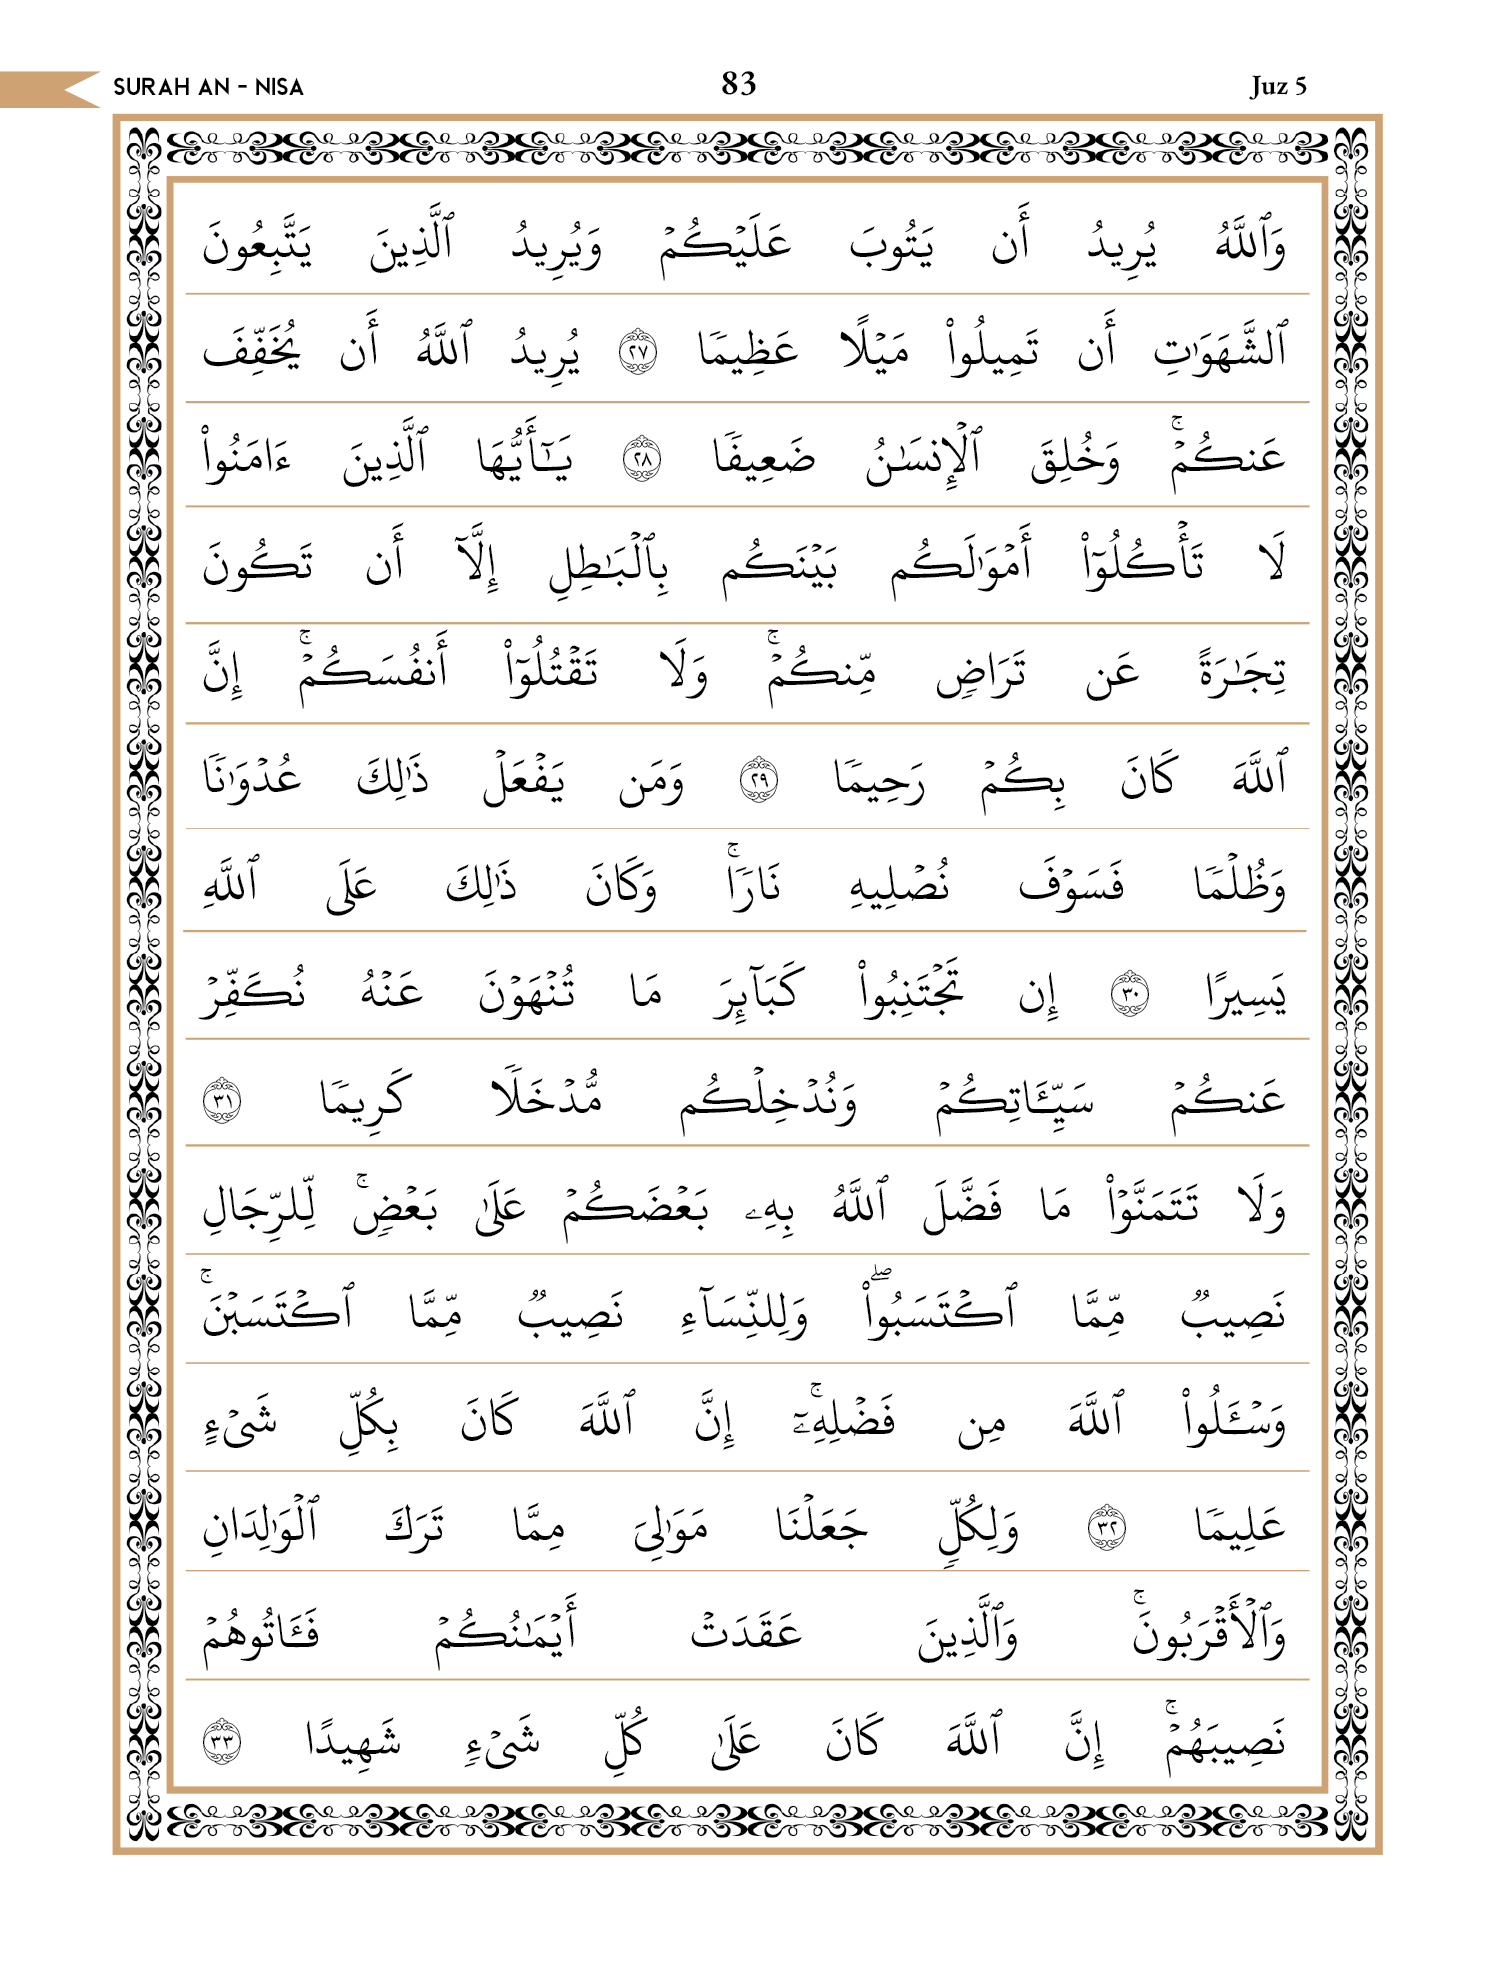 SURAH AN - NISA 83 Juz 5
وَٱللَّهُ يُرِيدُ أَن يَتُوبَ عَلَيۡكُمۡ وَيُرِيدُ ٱلَّذِينَ يَتَّبِعُونَ
ٱلشَّهَوَٰتِ أَن تَمِيلُواْ مَيۡلًا عَظِيمٗا ٢٧ يُرِيدُ ٱللَّهُ أَن يُخَفِّفَ
عَنكُمۡۚ وَخُلِقَ ٱلۡإِنسَٰنُ ضَعِيفٗا ٢٨ يَٰٓأَيُّهَا ٱلَّذِينَ ءَامَنُواْ
لَا تَأۡكُلُوٓاْ أَمۡوَٰلَكُم بَيۡنَكُم بِٱلۡبَٰطِلِ إِلَّآ أَن تَكُونَ
تِجَٰرَةً عَن تَرَاضٖ مِّنكُمۡۚ وَلَا تَقۡتُلُوٓاْ أَنفُسَكُمۡۚ إِنَّ
ٱللَّهَ كَانَ بِكُمۡ رَحِيمٗا ٢٩ وَمَن يَفۡعَلۡ ذَٰلِكَ عُدۡوَٰنٗا
وَظُلۡمٗا فَسَوۡفَ نُصۡلِيهِ نَارٗاۚ وَكَانَ ذَٰلِكَ عَلَى ٱللَّهِ
يَسِيرًا ٣٠ إِن تَجۡتَنِبُواْ كَبَآئِرَ مَا تُنۡهَوۡنَ عَنۡهُ نُكَفِّرۡ
عَنكُمۡ سَيِّـَٔاتِكُمۡ وَنُدۡخِلۡكُم مُّدۡخَلٗا كَرِيمٗا ٣١
وَلَا تَتَمَنَّوۡاْ مَا فَضَّلَ ٱللَّهُ بِهِۦ بَعۡضَكُمۡ عَلَىٰ بَعۡضٖۚ لِّلرِّجَالِ
نَصِيبٞ مِّمَّا ٱكۡتَسَبُواْۖ وَلِلنِّسَآءِ نَصِيبٞ مِّمَّا ٱكۡتَسَبۡنَۚ
وَسۡـَٔلُواْ ٱللَّهَ مِن فَضۡلِهِۦٓۚ إِنَّ ٱللَّهَ كَانَ بِكُلِّ شَيۡءٍ
عَلِيمٗا ٣٢ وَلِكُلّٖ جَعَلۡنَا مَوَٰلِيَ مِمَّا تَرَكَ ٱلۡوَٰلِدَانِ
وَٱلۡأَقۡرَبُونَۚ وَٱلَّذِينَ عَقَدَتۡ أَيۡمَٰنُكُمۡ فَـَٔاتُوهُمۡ
نَصِيبَهُمۡۚ إِنَّ ٱللَّهَ كَانَ عَلَىٰ كُلِّ شَيۡءٖ شَهِيدًا ٣٣